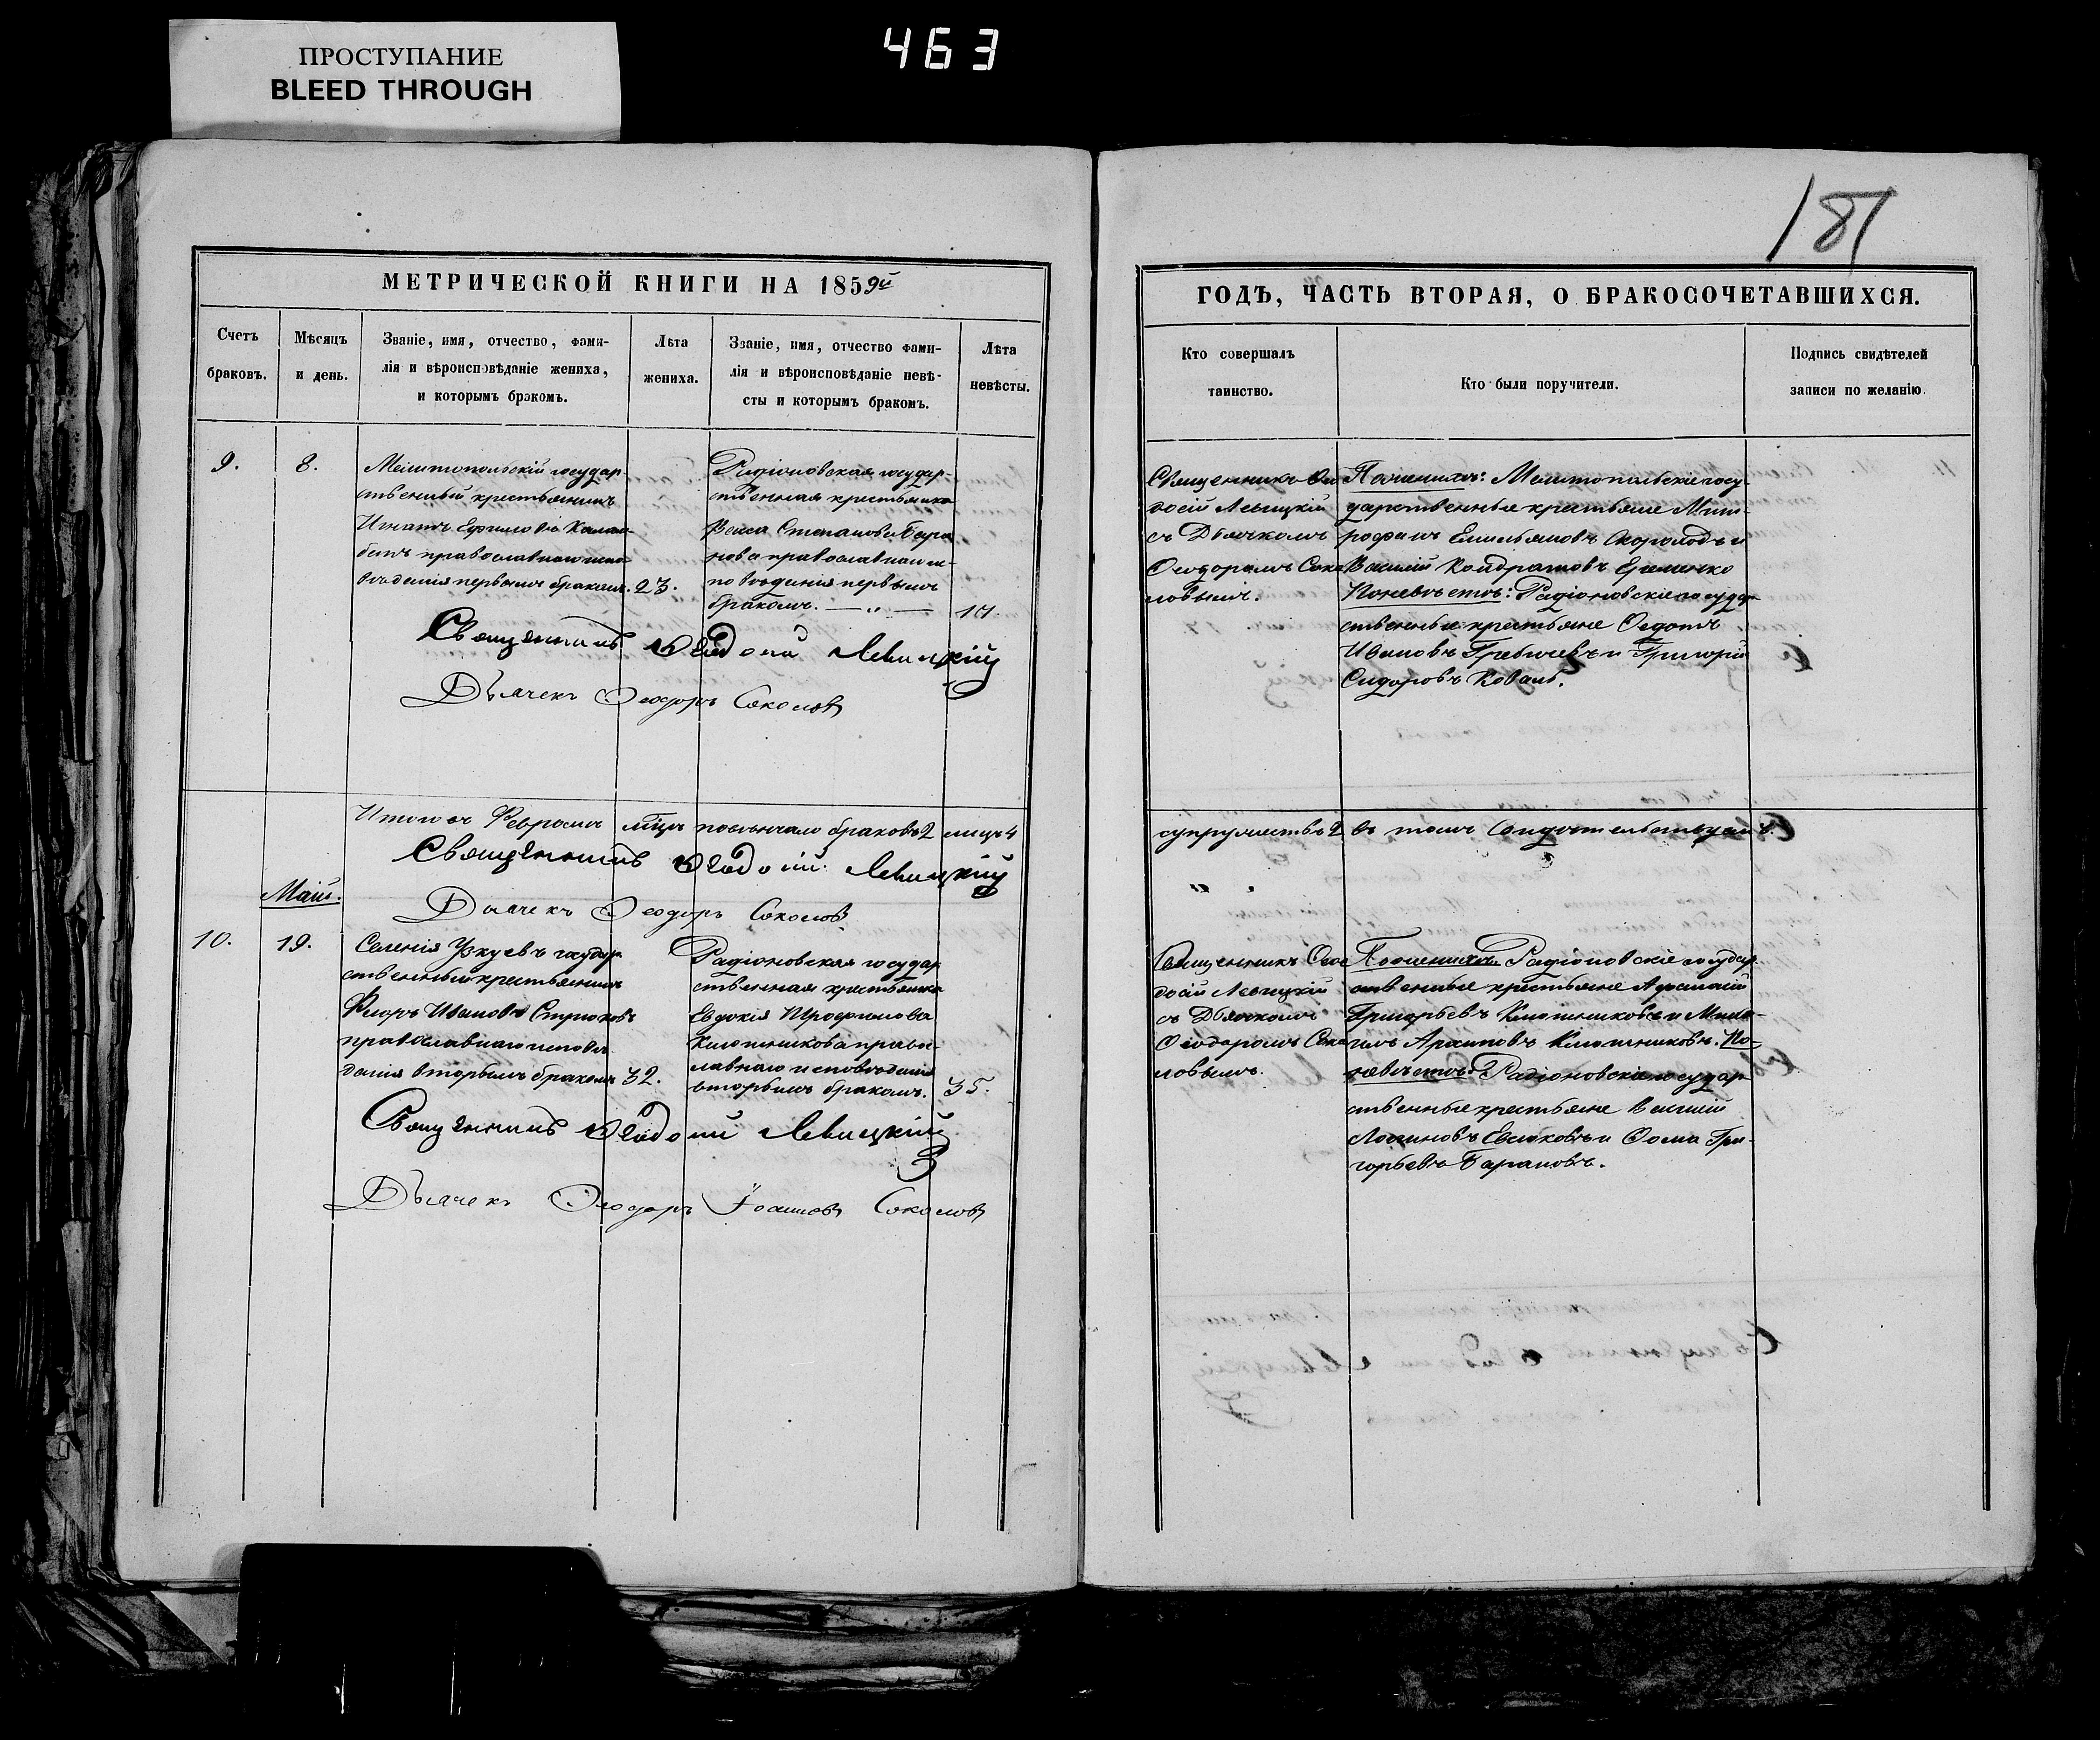 ПРОСТУПАНИЕ
BLEED THROUGH
463
181
МЕТРИЧЕСКОЙ КНИГИ НА 1859й
Счетъ
браковъ.
Мѣсяцъ
и день.
Званіе, имя, отчество, фами-
лія и вѣроисповѣданіе жениха,
и которымъ бракомъ.
Лѣта
жениха.
Званіе, имя, отчество фами-
лія и вѣроисповѣданіе невѣ-
сты и которымъ бракомъ.
Лѣта
невѣсты.
9.
8.
Мелитопольскій государ-
ственный крестьянинъ
Игнатъ Ефимовъ
православнаго испо-
вѣданія первымъ бракомъ.
23.
Радіоновская государ-
ственная крестьянка
Васса Степанова Бара
нова православнаго ис-
повѣданія первымъ
бракомъ. — „ —
17.
Священникъ Ѳеодосій Левицкій
Дьячекъ Ѳеодоръ Соколовъ
Итого въ Февралѣ мцѣ повѣнчано браковъ 2 лицъ 4
Священникъ Ѳеодосій Левицкій
Дьячекъ Ѳеодоръ Соколовъ
Май.
10.
19.
Селенія Узкуевъ государ
ственный крестьянинъ
Флоръ Ивановъ Стрюковъ
православнаго исповѣ
данія вторымъ бракомъ
32.
Радіоновская государ
ственная крестьянка
Евдокія Трофимова
Клюшникова правос-
лавнаго исповѣданія
вторымъ бракомъ.
35.
Священникъ Ѳеодосій Левицкій
Дьячекъ Ѳеодоръ Іоанновъ Соколовъ
ГОДЪ, ЧАСТЬ ВТОРАЯ, О БРАКОСОЧЕТАВШИХСЯ.
Кто совершалъ
таинство.
Кто были поручители.
Подпись свидѣтелей
записи по желанію.
Священникъ Ѳео
досій Левицкій
съ Дьячкомъ
Ѳеодоромъ Соко
ловымъ.
По женихѣ: Мелитопольскіе госу-
дарственные крестьяне Мит-
рофанъ Емельяновъ Скороходъ и
Василій Кондратовъ Ерименко
По невѣстѣ: Радіоновскіе государ
ственные крестьяне Ѳедотъ
Ивановъ Гребневъ и Григорій
Сидоровъ Коваль.
супружествъ 2 въ томъ свидѣтельствуемъ.
Священникъ Ѳео
досій Левицкій
съ Дьячкомъ
Ѳеодоромъ Соко
ловымъ.
По женихѣ Радіоновскіе государ
ственные крестьяне Афанасій
Григорьевъ Клюшниковъ и Миха-
илъ Архиповъ Клюшниковъ. По-
невѣстѣ: Радіоновскіе государ
ственные крестьяне Василій
Логиновъ Евсюковъ и Ѳома Гри-
горьевъ Барановъ.